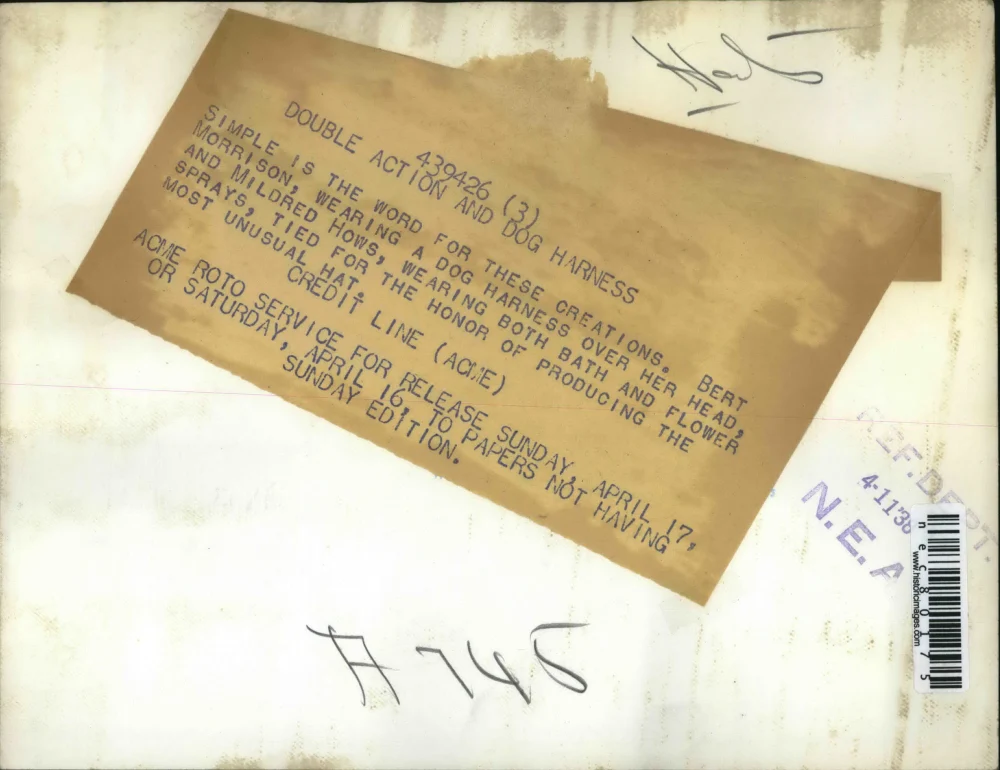 Hats
439426 (3)
DOUBLE ACTION AND DOG HARNESS
SIMPLE IS THE WORD FOR THESE CREATIONS. BERT
MORRISON, WEARING A DOG HARNESS OVER HER HEAD,
AND MILDRED HOWS, WEARING BOTH BATH AND FLOWER
SPRAYS, TIED FOR THE HONOR OF PRODUCING THE
MOST UNUSUAL HAT.
CREDIT LINE (ACME)
ACME ROTO SERVICE FOR RELEASE SUNDAY, APRIL 17,
OR SATURDAY, APRIL 16, TO PAPERS NOT HAVING
SUNDAY EDITION.
REF. DEPT.
4-11'38
N.E.A
nec80175
www.historicimages.com
A 745